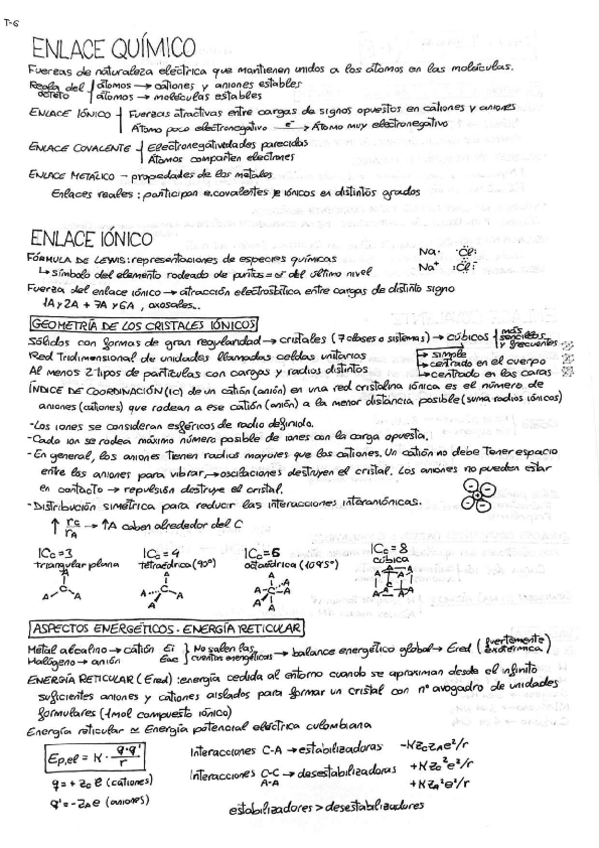 T-6
ENLACE QUÍMICO
Fuerzas de naturaleza eléctrica que mantienen unidos a los átomos en las moléculas.
Regla del octeto { átomos → cationes y aniones estables
átomos → moléculas estables
ENLACE IÓNICO { Fuerzas atractivas entre cargas de signos opuestos en cationes y aniones
Átomo poco electronegativo —e⁻→ Átomo muy electronegativo
ENLACE COVALENTE { Electronegatividades parecidas
Átomos comparten electrones
ENLACE METÁLICO → propiedades de los metales
Enlaces reales: participan e.covalentes y e iónicos en distintos grados
ENLACE IÓNICO
FÓRMULA DE LEWIS: representaciones de especies químicas
Na· :Cl:
↳ símbolo del elemento rodeado de puntos = e⁻ del último nivel
Na⁺ :Cl:⁻
Fuerza del enlace iónico → atracción electrostática entre cargas de distinto signo
1A y 2A + 7A y 6A, oxosales...
GEOMETRÍA DE LOS CRISTALES IÓNICOS
Sólidos con formas de gran regularidad → cristales (7 clases o sistemas) → cúbicos { más sencillos y frecuentes
Red Tridimensional de unidades llamadas celdas unitarias → simple
→ centrado en el cuerpo
Al menos 2 tipos de partículas con cargas y radios distintos → centrado en las caras
ÍNDICE DE COORDINACIÓN (IC) de un catión (anión) en una red cristalina iónica es el número de
aniones (cationes) que rodean a ese catión (anión) a la menor distancia posible (suma radios iónicos)
- Los iones se consideran esféricos de radio definido.
- Cada ion se rodea máximo número posible de iones con la carga opuesta.
- En general, los aniones tienen radios mayores que los cationes. Un catión no debe tener espacio
entre los aniones para vibrar, → oscilaciones destruyen el cristal. Los aniones no pueden estar
en contacto → repulsión destruye el cristal.
- Distribución simétrica para reducir las interacciones interaniónicas.
↑ rc/rA → ↑A caben alrededor del C
ICc = 3 ICc = 4 ICc = 6 ICc = 8
triangular plana tetraédrica (90°) octaédrica (109'5°) cúbica
A A A A A C A A A A C A A A A A A C A A A A A A A A A A
ASPECTOS ENERGÉTICOS. ENERGÍA RETICULAR
Metal alcalino → catión Ei } No salen las cuentas energéticas → balance energético global → Ered (fuertemente exotérmica)
Halógeno → anión Eae
ENERGÍA RETICULAR (Ered): energía cedida al entorno cuando se aproximan desde el infinito
suficientes aniones y cationes aislados para formar un cristal con nº avogadro de unidades
formulares (1mol compuesto iónico)
Energía reticular ≃ Energía potencial eléctrica culombiana
Ep,el = K · q·q'/r
Interacciones C-A → estabilizadoras -KZcZAe²/r
Interacciones C-C A-A → desestabilizadoras +KZc²e²/r
+KZA²e²/r
q = + Zc e (cationes)
q' = - ZA e (aniones)
estabilizadores > desestabilizadores